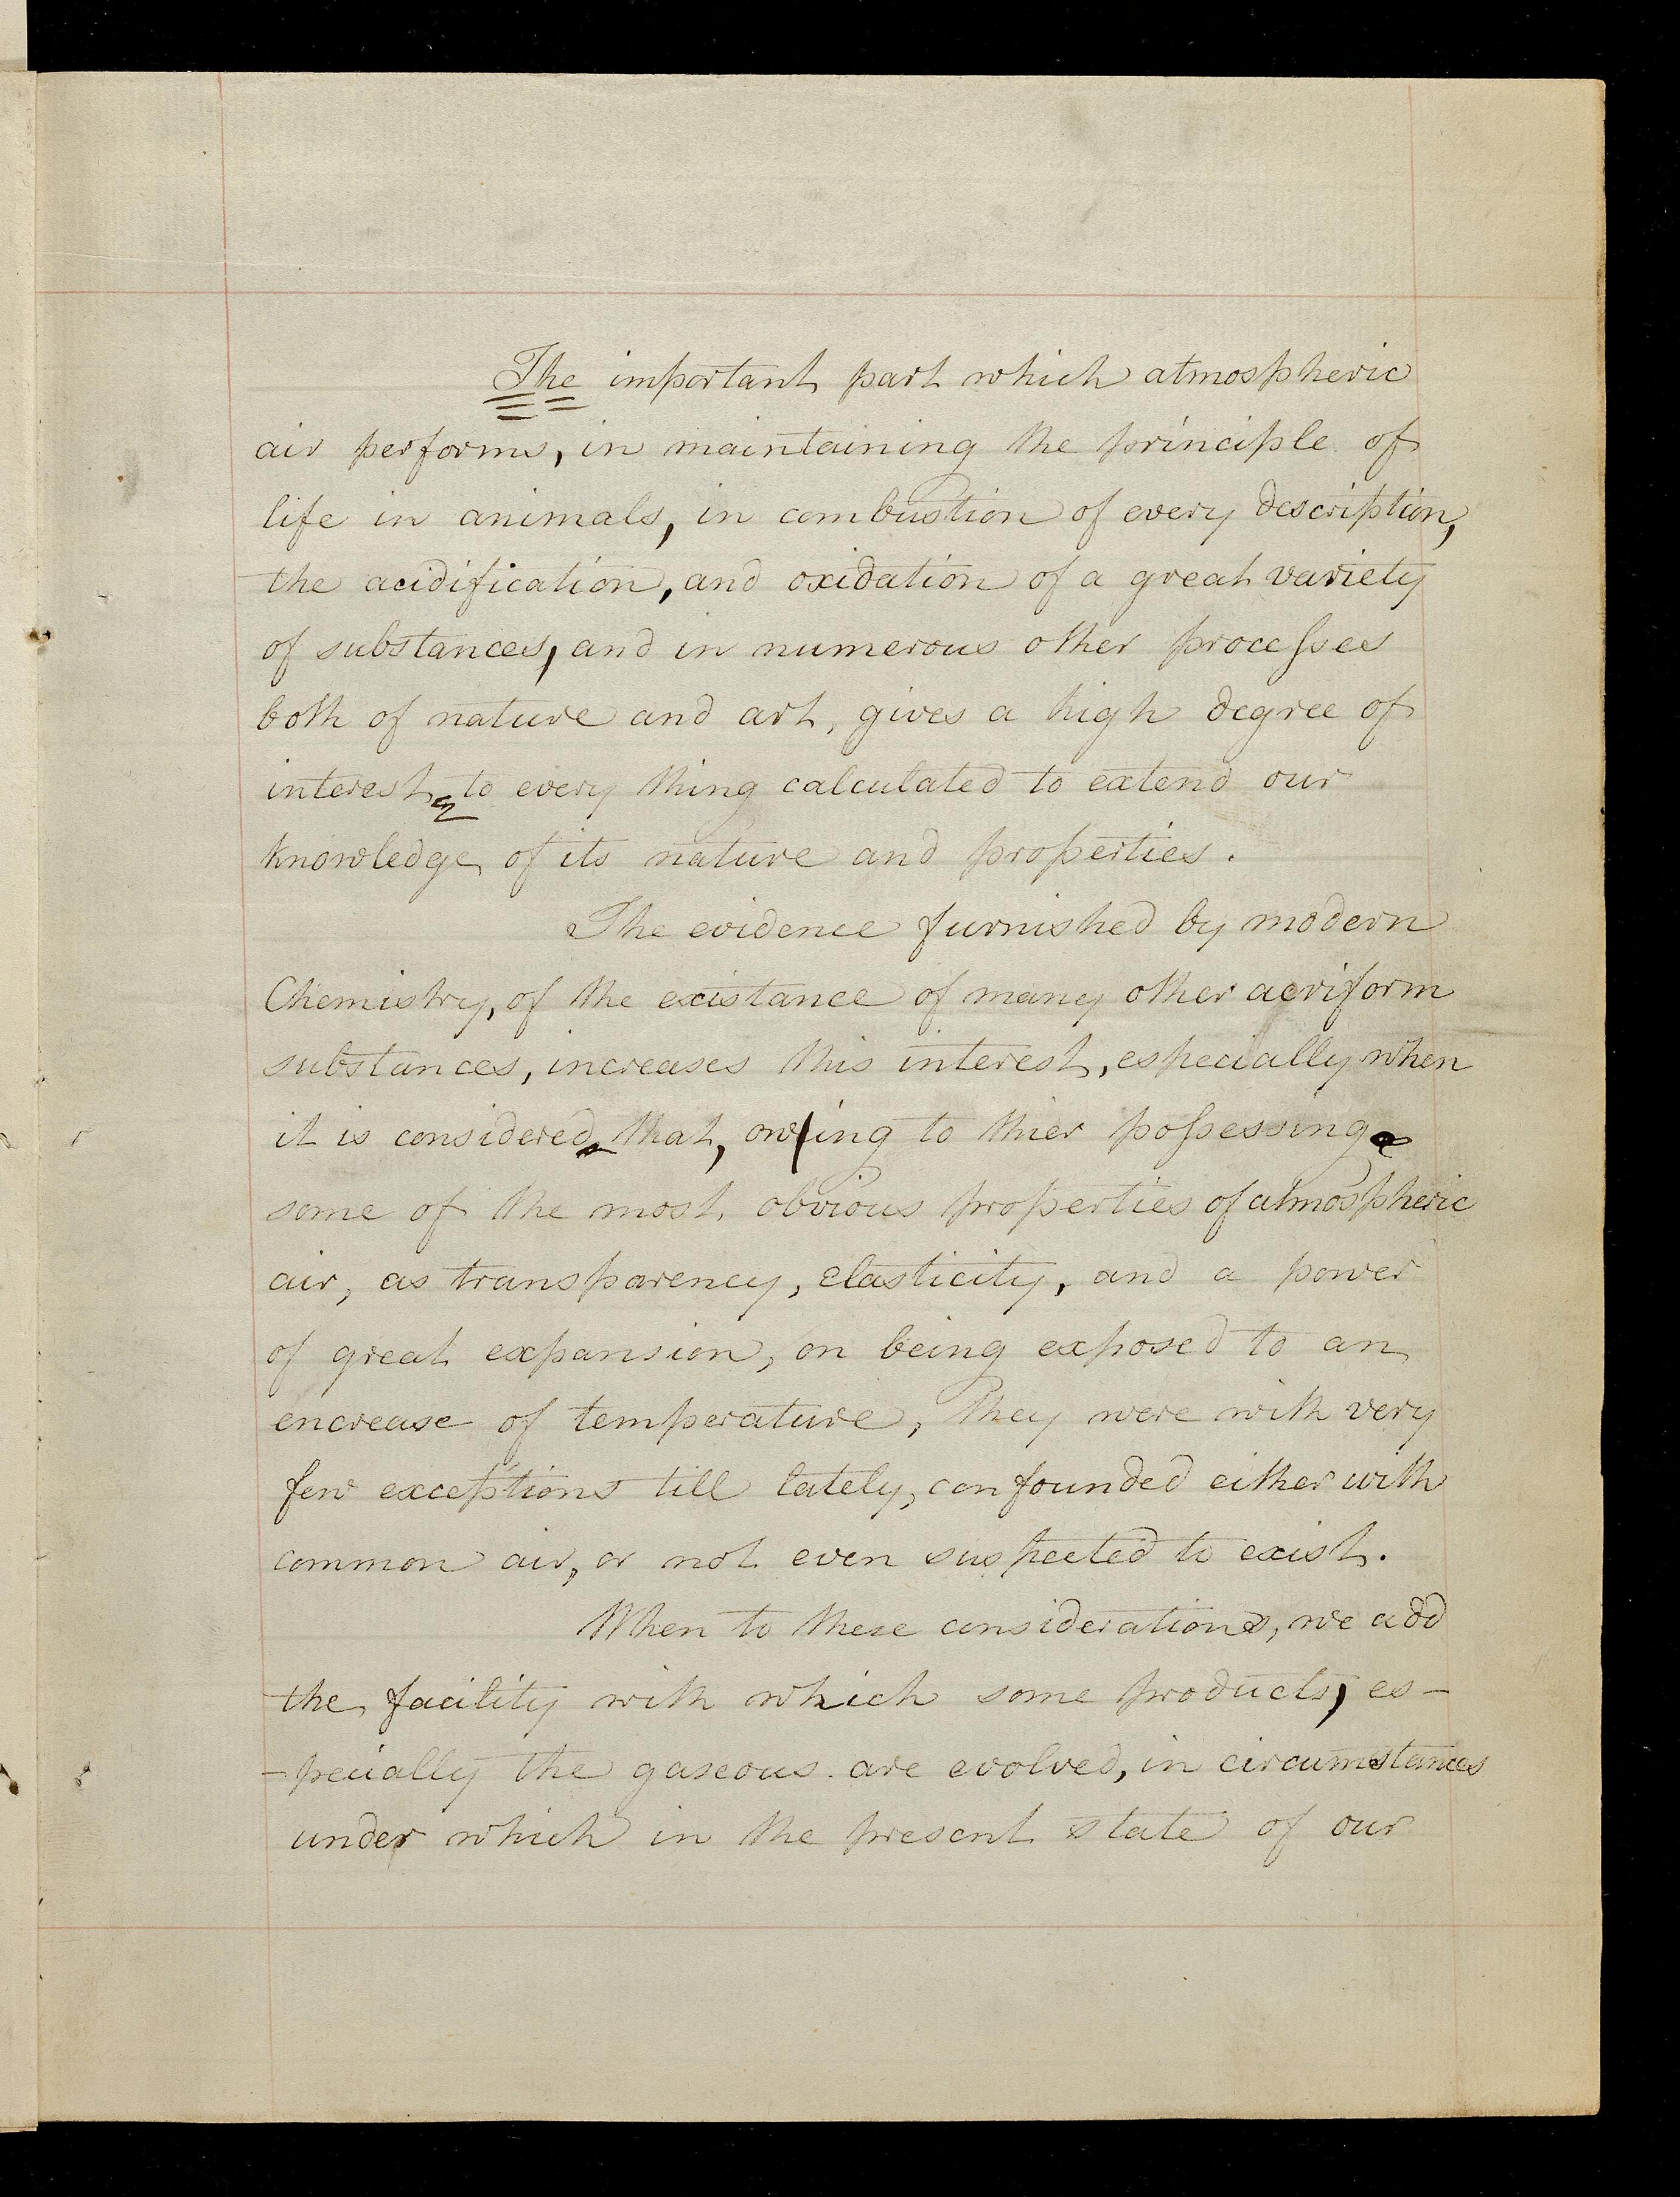 The important part which atmospheric
air performs, in maintaining the principle of
life in animals, in combustion of every description,
the acidification, and oxidation of a great variety
of substances, and in numerous other processes
both of nature and art, gives a high degree of
interest to every thing calculated to extend our
knowledge of its nature and properties.
The evidence furnished by modern
Chemistry, of the existance of many other aeriform
substances, increases this interest, especially when
it is considered that, owing to thier possessing
some of the most obvious properties of atmospheric
air, as transparency, elasticity, and a power
of great expansion, on being exposed to an
encrease of temperature, they were with very
few exceptions till lately, confounded either with
common air, or not even suspected to exist.
When to these considerations, we add
the facility with which some products, es-
-pecially the gaseous are evolved, in circumstances
under which in the present state of our